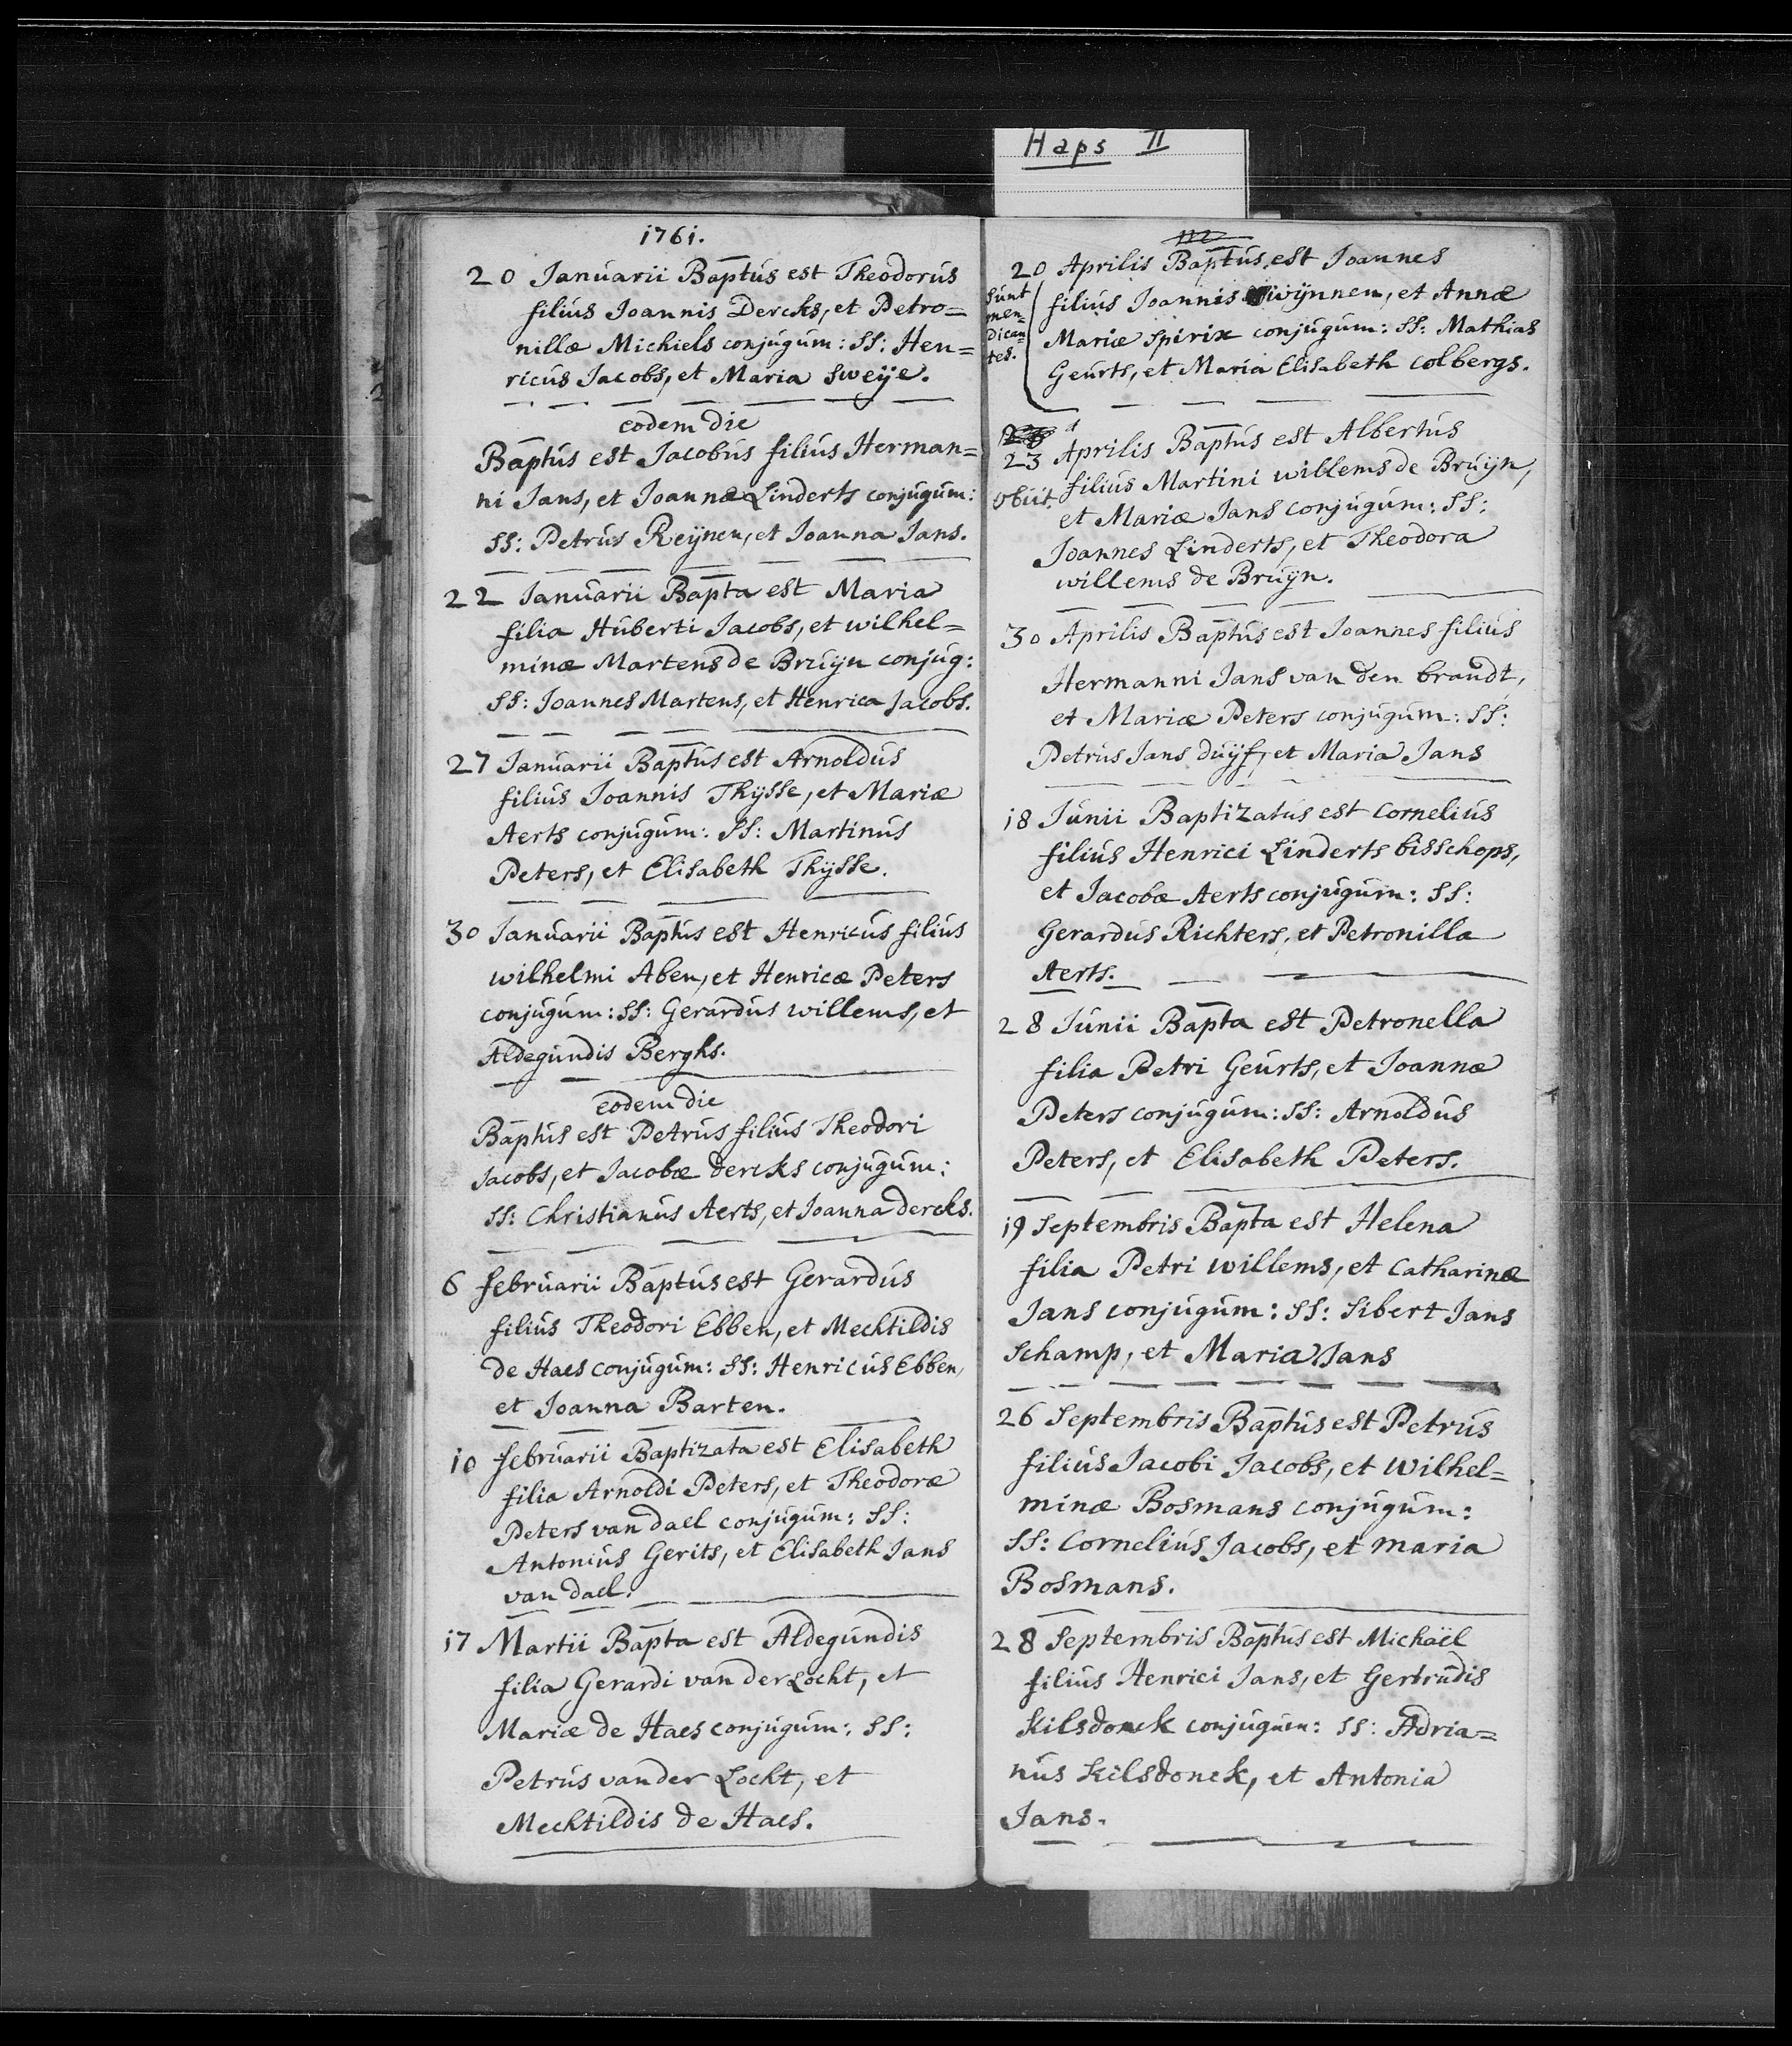 Haps II
1761.
20 Januarii Baptus est Theodorus
filius Joannis Dercks, et Petro=
nillæ Michiels conjugum: SS: Hen=
ricus Jacobs, et Maria Sweije.
eodem die
Baptus est Jacobus filius Herman=
ni Jans, et Joannæ Linderts conjugum:
SS: Petrus Reijnen, et Joanna Jans.
22 Januarii Bapta est Maria
filia Huberti Jacobs, et wilhel=
minæ Martens de Bruijn conjug:
SS: Joannes Martens, et Henrica Jacobs.
27 Januarii Baptus est Arnoldus
filius Joannis Thijsse, et Mariæ
Aerts conjugum: SS: Martinus
Peters, et Elisabeth Thijsse.
30 Januarii Baptus est Henricus filius
wilhelmi Aben, et Henricæ Peters
conjugum: SS: Gerardus willems, et
Aldegundis Berghs.
eodem die
Baptus est Petrus filius Theodori
Jacobs, et Jacobæ dercks conjugum:
SS: Christianus Aerts, et Joanna dercks.
6 februarii Baptus est Gerardus
filius Theodori Ebben, et Mechtildis
de Haes conjugum: SS: Henricus Ebben,
et Joanna Barten.
10 februarii Baptizata est Elisabeth
filia Arnoldi Peters, et Theodoræ
Peters van dael conjugum: SS:
Antonius Gerits, et Elisabeth Jans
van dael.
17 Martii Bapta est Aldegundis
filia Gerardi van der Locht, et
Mariæ de Haes conjugum: SS:
Petrus vander Locht, et
Mechtildis de Haes.
20 Aprilis Baptus est Joannes
filius Joannis wijnnen, et Annæ
Mariæ Spirix conjugum: SS: Mathias
Geurts, et Maria Elisabeth Colbergs.
Sunt
men=
dican=
tes.
23 Aprilis Baptus est Albertus
filius Martini willems de Bruijn,
obiit.
et Mariæ Jans conjugum: SS:
Joannes Linderts, et Theodora
willems de Bruijn.
30 Aprilis Baptus est Joannes filius
Hermanni Jans van den brandt,
et Mariæ Peters conjugum: SS:
Petrus Jans duijf, et Maria Jans
18 Junii Baptizatus est Cornelius
filius Henrici Linderts bisschops,
et Jacobæ Aerts conjugum: SS:
Gerardus Richters, et Petronilla
Aerts.
28 Junii Bapta est Petronella
filia Petri Geurts, et Joannæ
Peters conjugum: SS: Arnoldus
Peters, et Elisabeth Peters.
19 Septembris Bapta est Helena
filia Petri willems, et Catharinæ
Jans conjugum: SS: Sibert Jans
Schamp, et Maria Jans
26 Septembris Baptus est Petrus
filius Jacobi Jacobs, et Wilhel=
minæ Bosmans conjugum:
SS: Cornelius Jacobs, et Maria
Bosmans.
28 Septembris Baptus est Michaël
filius Henrici Jans, et Gertrudis
Kilsdonck conjugum: SS: Adria=
nus Kilsdonck, et Antonia
Jans.